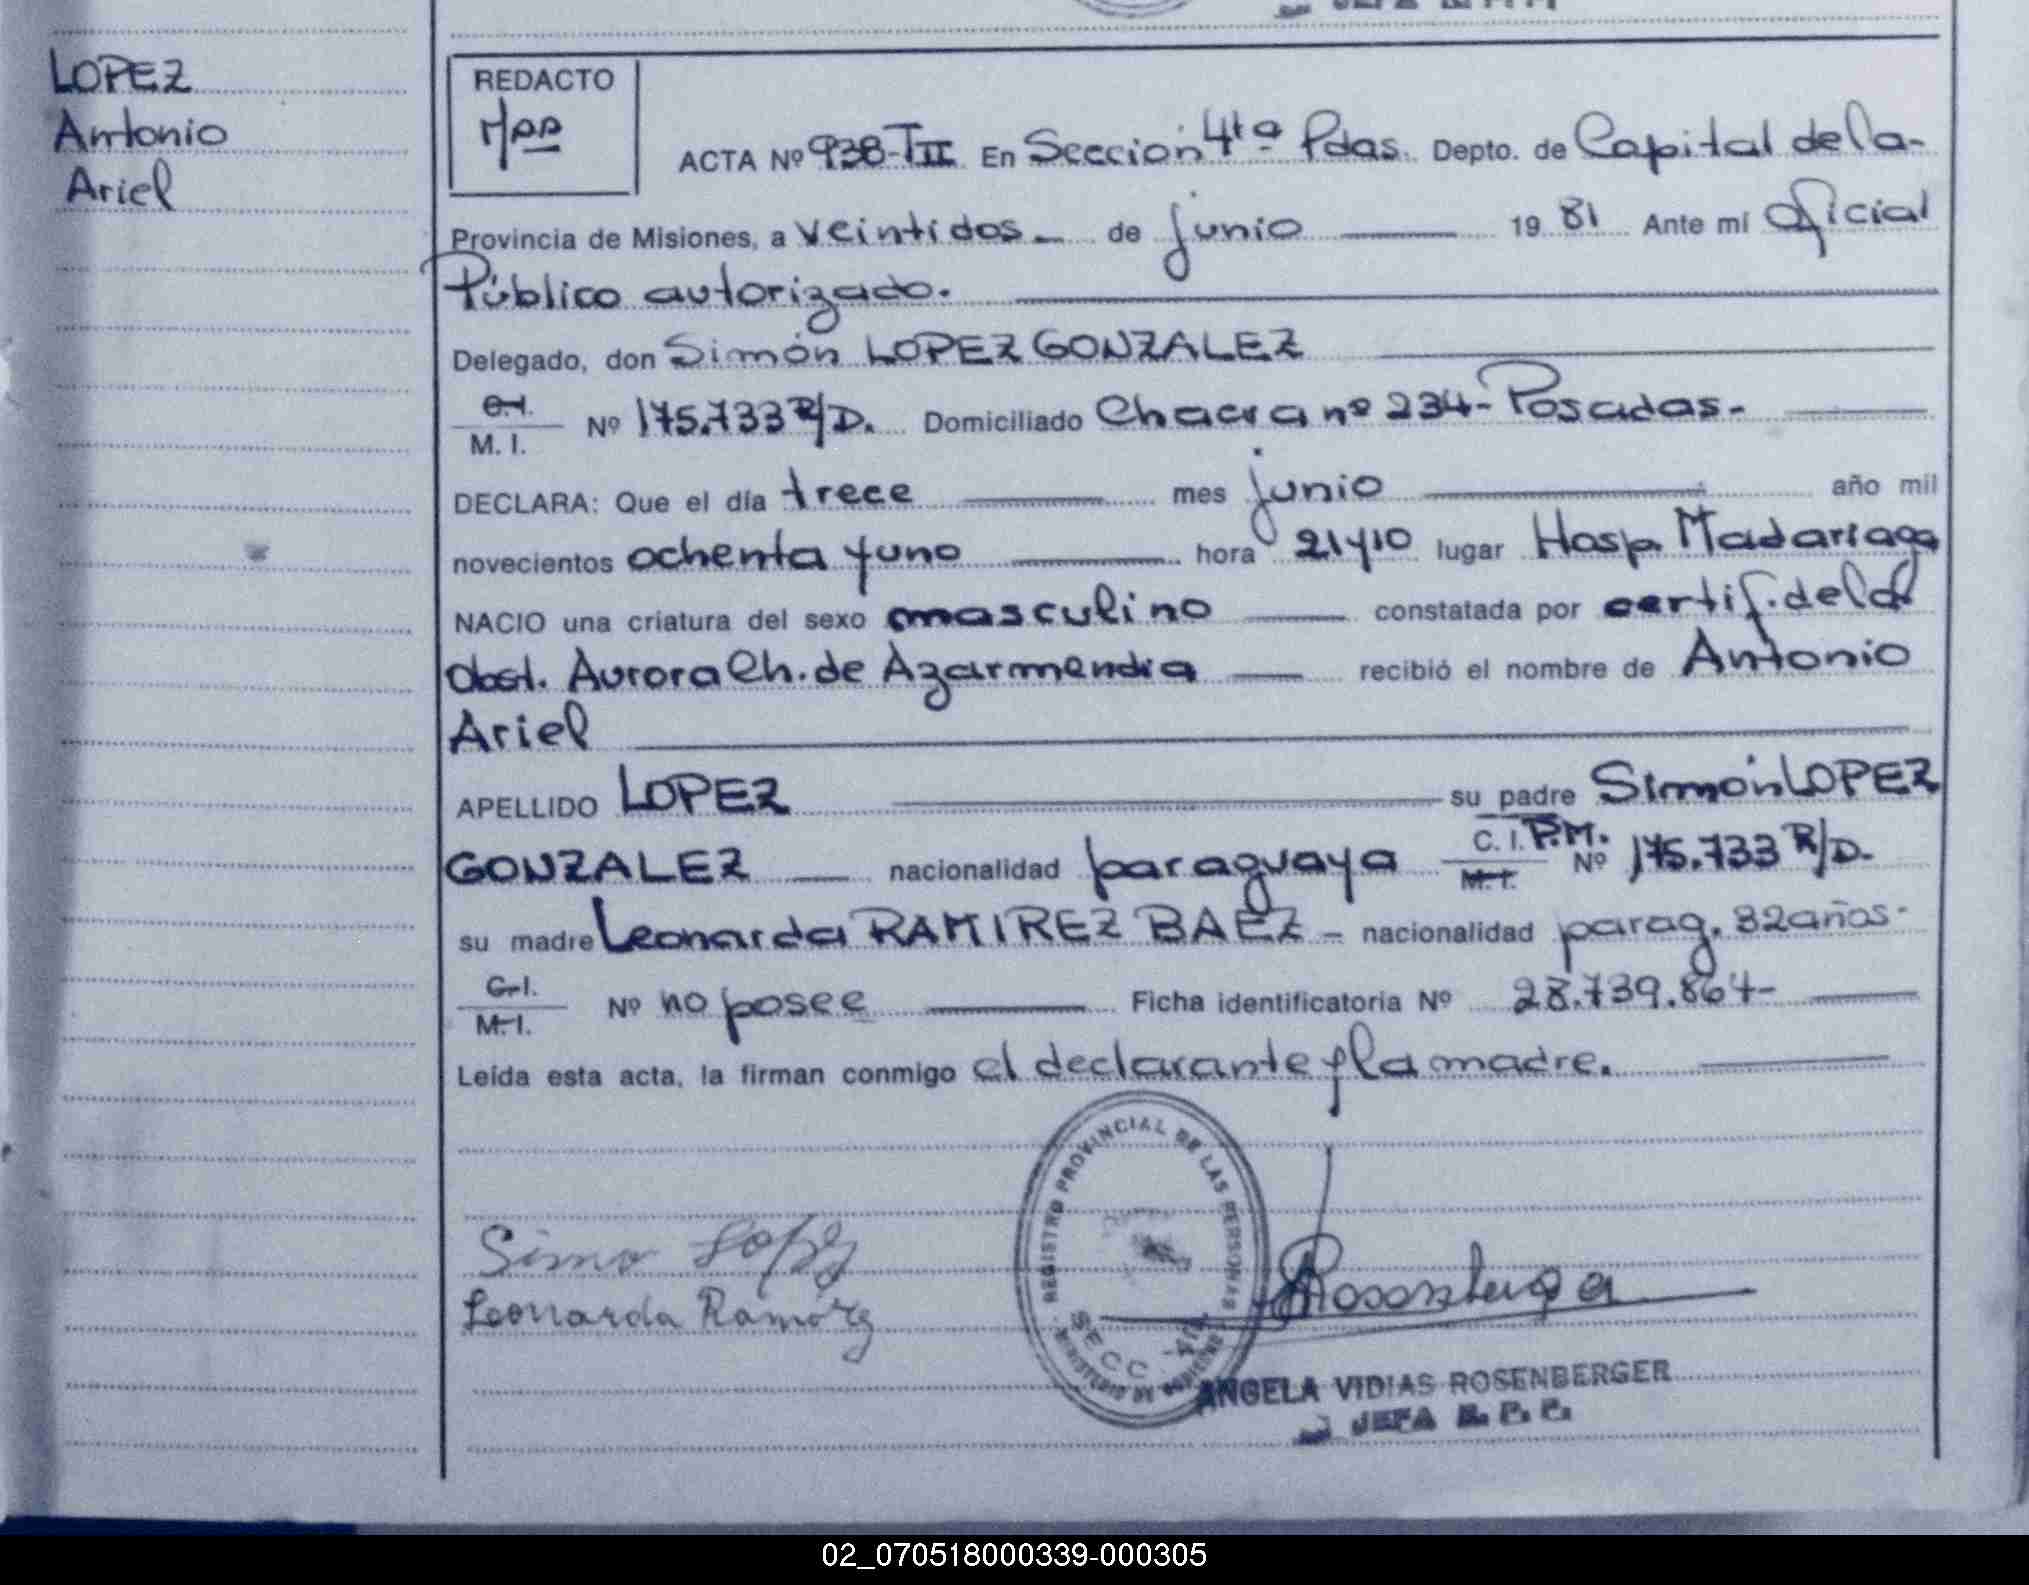 LOPEZ
Antonio
Ariel
REDACTO
ACTA Nº 938-TII En Sección 4ta Pdas. Depto. de Capital de la-
Provincia de Misiones, a veintidos - de junio 19 81 Ante mí Oficial
Público autorizado.
Delegado, don Simón LOPEZ GONZALEZ
C.I.
M. I. Nº 175.733 R/D. Domiciliado Chacra nº 234- Posadas.-
DECLARA: Que el día trece mes junio año mil
novecientos ochenta y uno hora 21 y 10 lugar Hosp Madariaga
NACIO una criatura del sexo masculino constatada por certif. de la
Obst. Aurora Ch. de Azarmendia recibió el nombre de Antonio
Ariel
APELLIDO LOPEZ su padre Simón LOPEZ
GONZALEZ nacionalidad paraguaya C. I. P.M. M. I. Nº 175.733 R/D.
su madre Leonarda RAMIREZ BAEZ - nacionalidad parag. 32 años.
C.I.
M.I. Nº no posee Ficha identificatoria Nº 28.739.864-
Leída esta acta, la firman conmigo el declarante y la madre.
REGISTRO PROVINCIAL DE LAS PERSONAS
SECC. 4ta
MINISTERIO DE GOBIERNO
Simo Lopez
Leonarda Ramírez
Rosenberger
ANGELA VIDIAS ROSENBERGER
JEFA
02_070518000339-000305